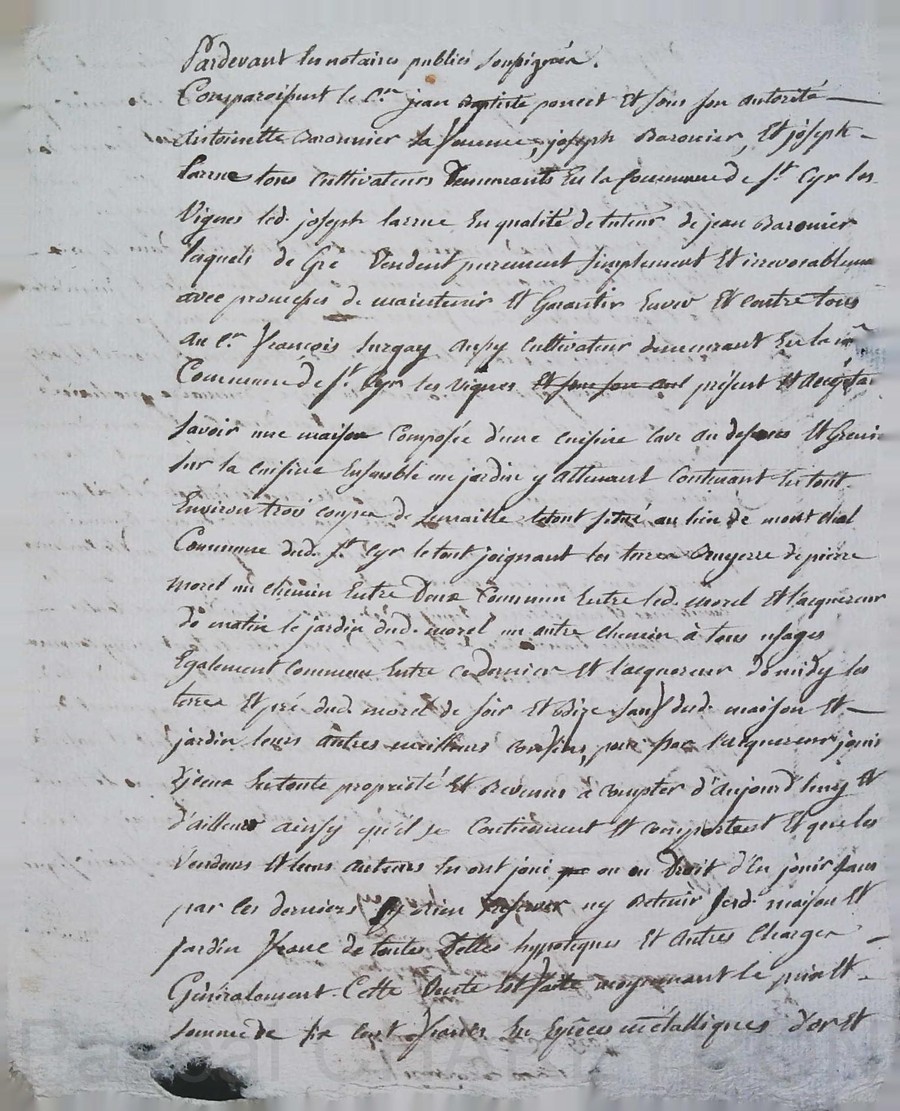 Pardevant les notaires publics soussignés.
Comparoissent le C.en jean Baptiste poncet Et sous son autorité
Antoinette Baronnier sa femme, joseph Baronier, Et joseph
larrue tous Cultivateurs Demeurants En la Commune de S.t Cyr les
Vignes led. joseph larrue En qualité de tuteur de jean Baronier
lesquels de Gré Vendent purement simplement Et irrevocableme
avec promesses de maintenir Et Garantir Envers Et contre tous
au C.en françois Surgay aussy Cultivateur demeurant En la m
Commune de S.t Cyr les Vignes Et sous son aut présent Et accepta
Savoir une maison Composée d'une cuisine cave au dessous Et Grenie
sur la cuisine Ensemble un jardin y attenant Contenant le tout
Environ trois coupes de semaille le tout situé au lieu de
Commune dud. S.t Cyr le tout joignant les terres de pierre
morel un chemin Entre Deux Commun Entre led. morel Et l'acquereur
de matin le jardin dud. morel un autre chemin à tous usages
Egalement Commun Entre ce dernier Et l'acquereur de midy les
terres Et pré dud morel de soir Et bize sauf dud. maison Et
jardin leurs autres meilleurs confins, pour par l'acquereur jouir
d'iceux En toute propriété Et Revenus à compter d'aujourd'huy Et
d'ailleurs ainsy qu'il se Contiennent Et comportent Et que les
Vendeurs Et leurs auteurs En ont joui ou eu Droit d'En jouir sans
par ces derniers y rien Reserver ny Retenir lesd. maison Et
jardin franc de toutes Dettes hypoteques Et Autres Charges
Généralement. Cette Vente Est faite moyennant le prix Et
somme de six cent francs En Espèces métalliques d'or Et
Pascal CHAR